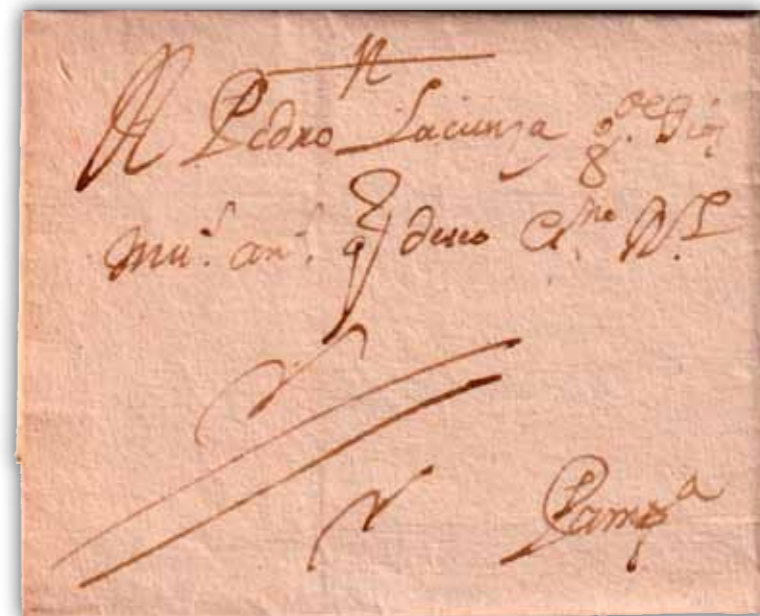 A Pedro Lacunza g.de Dios
mu.s an.s q deseo
Pamp.a